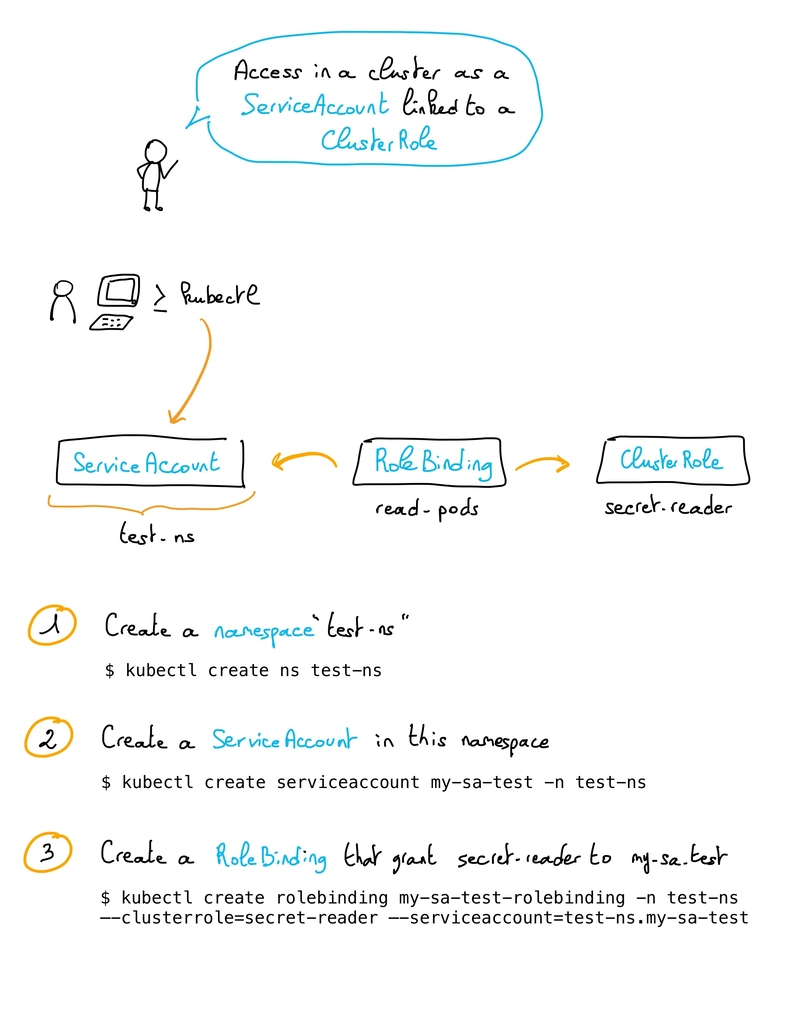 Access in a cluster as a
ServiceAccount linked to a
ClusterRole
≥ kubectl
ServiceAccount
RoleBinding
ClusterRole
test-ns
read-pods
secret-reader
1 Create a namespace "test-ns"
$ kubectl create ns test-ns
2 Create a ServiceAccount in this namespace
$ kubectl create serviceaccount my-sa-test -n test-ns
3 Create a RoleBinding that grant secret-reader to my-sa-test
$ kubectl create rolebinding my-sa-test-rolebinding -n test-ns
--clusterrole=secret-reader --serviceaccount=test-ns.my-sa-test